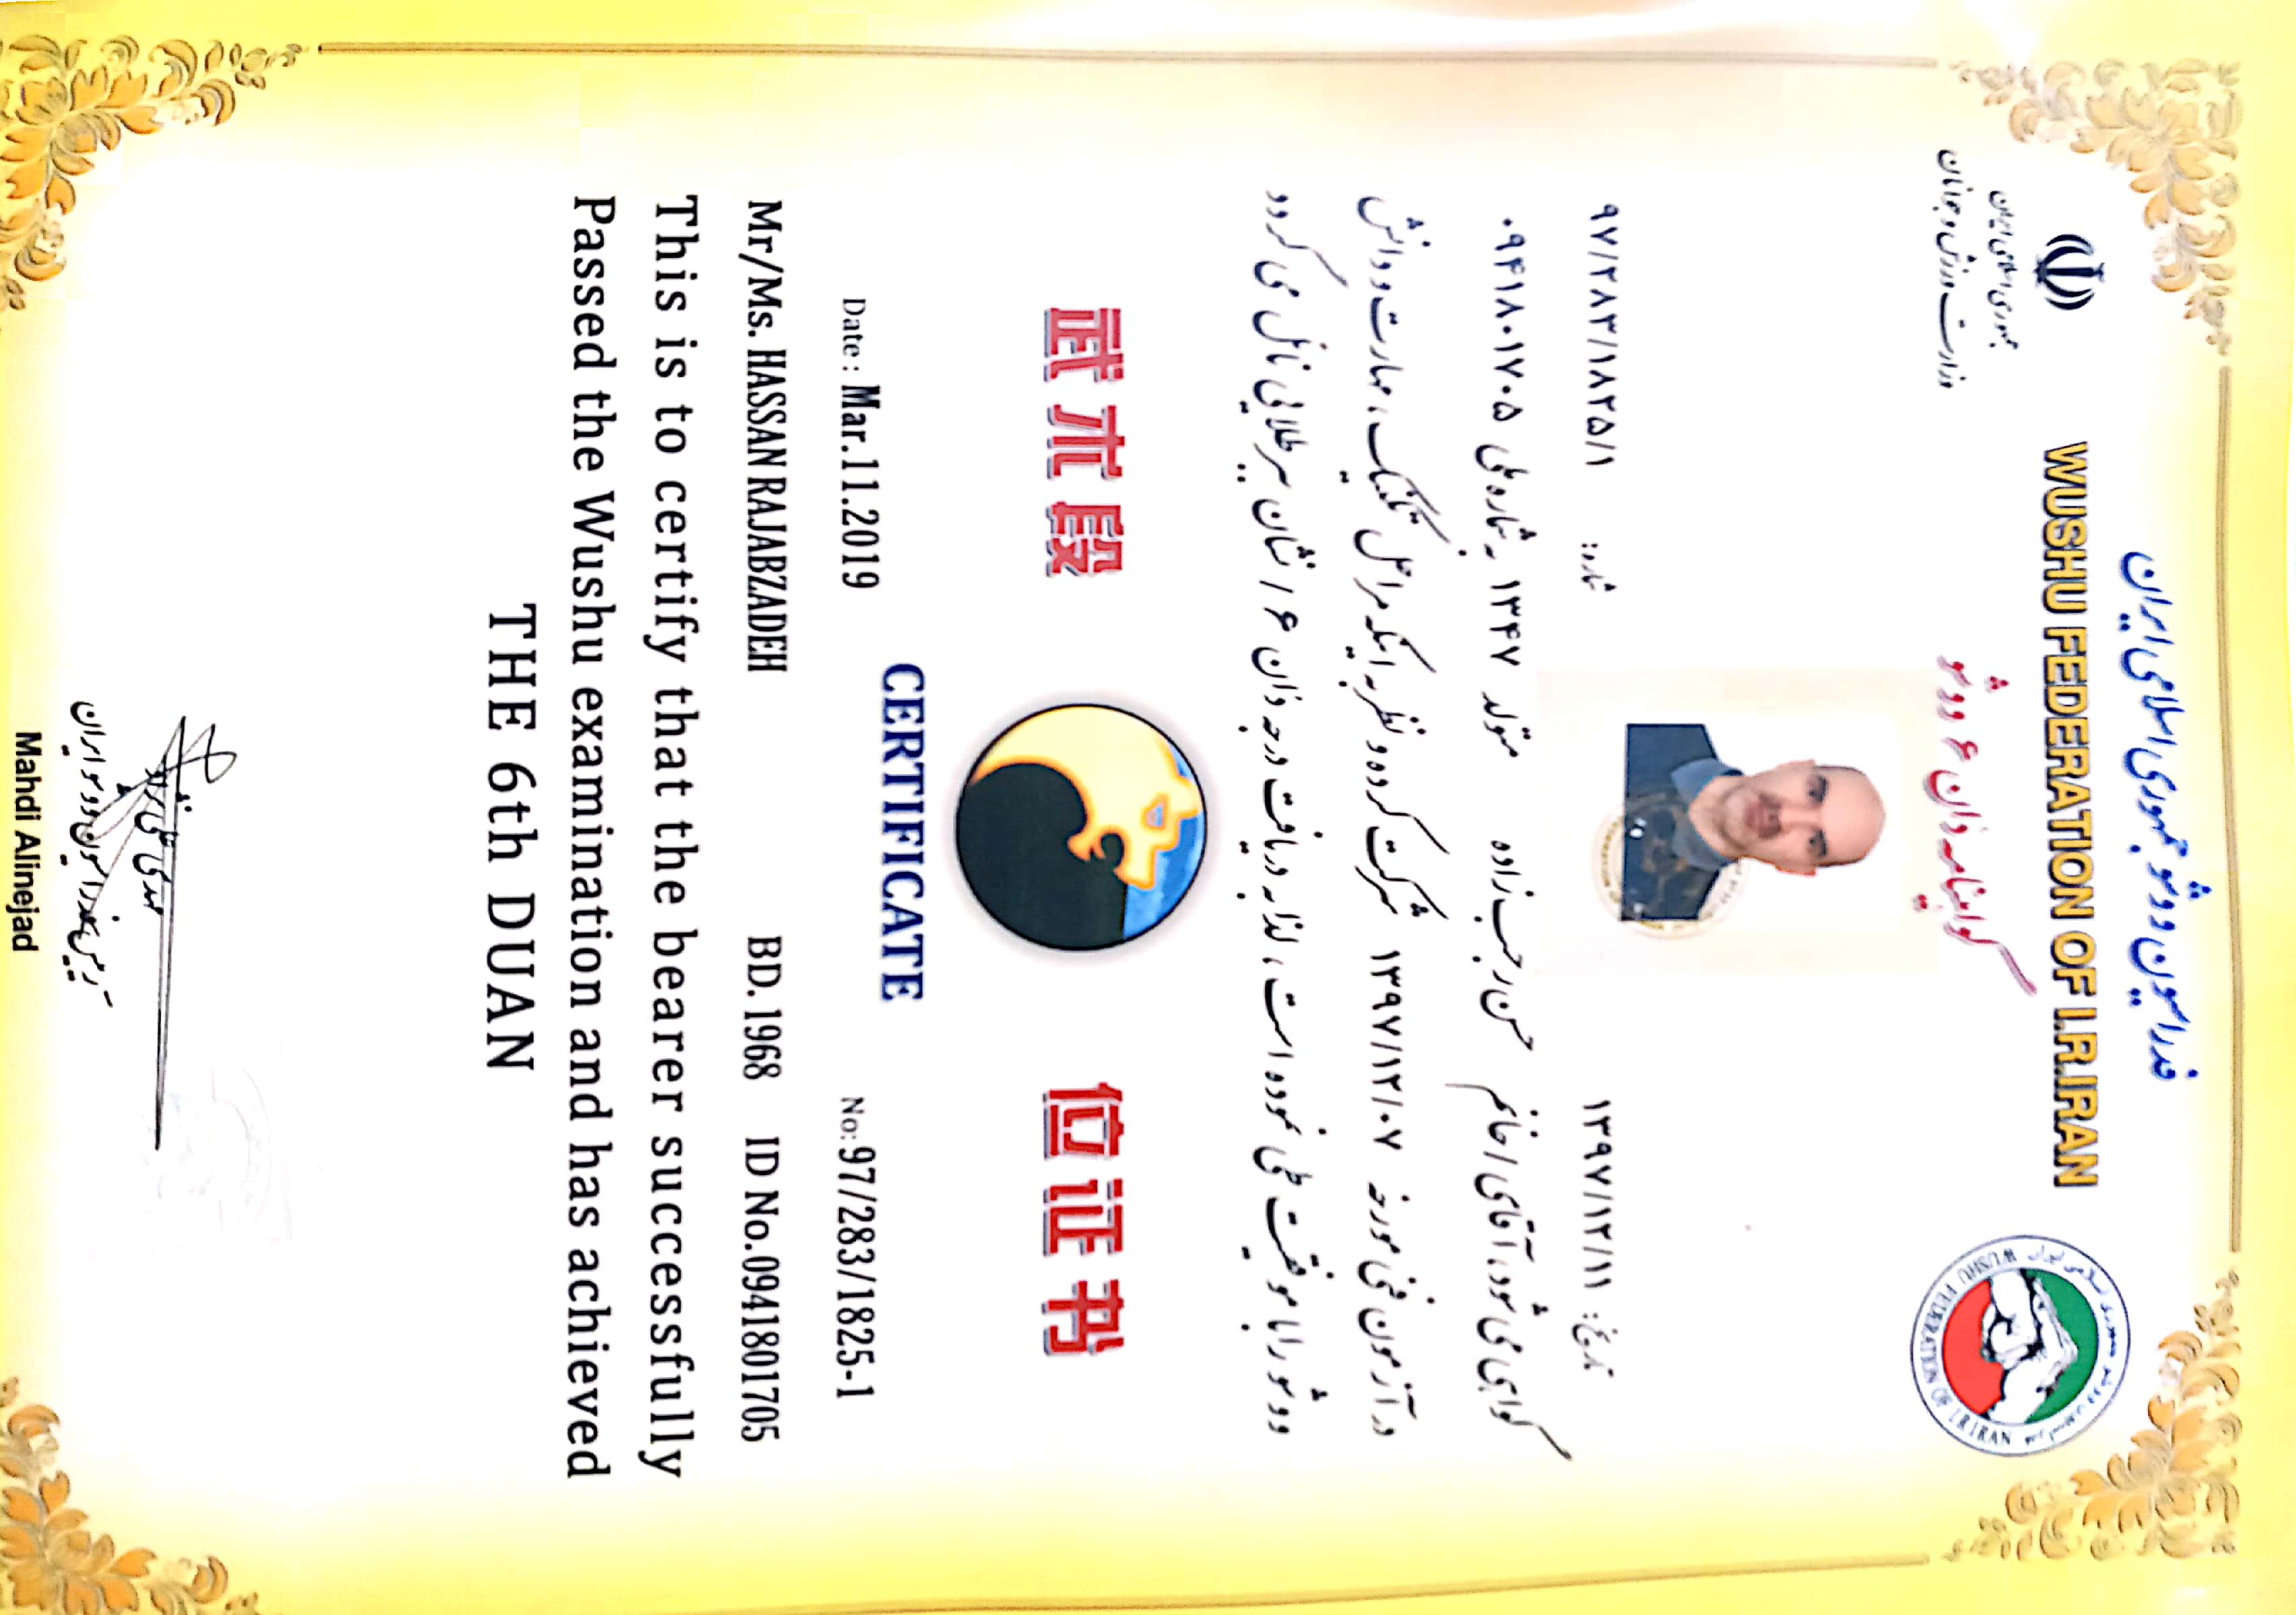 فدراسیون ووشو جمهوری اسلامی ایران
WUSHU FEDERATION OF I.R.IRAN
جمهوری اسلامی ایران
وزارت ورزش و جوانان
گواهینامه دان ۶ ووشو
WUSHU FEDERATION OF I.R.IRAN
تاریخ: ۱۳۹۷/۱۲/۱۱ شماره: ۹۷/۲۸۳/۱۸۲۵/۱
گواهی می شود، آقای / خانم حسن رجب زاده متولد ۱۳۴۷ به شماره ملی ۰۹۴۱۸۰۱۷۰۵
در آزمون فنی مورخه ۱۳۹۷/۱۲/۰۷ شرکت کرده و نظر به اینکه مراحل تکنیک، مهارت و دانش
ووشو را با موفقیت طی نموده است، لذا به دریافت درجه دان ۶ / نشان ببر طلایی نائل می گردد
武术段 位证书
CERTIFICATE
Date : Mar.11.2019 No: 97/283/1825-1
Mr/Ms. HASSAN RAJABZADEH BD. 1968 ID No.0941801705
This is to certify that the bearer successfully
Passed the Wushu examination and has achieved
THE 6th DUAN
مهدی علی نژاد
رئیس فدراسیون ووشو ایران
Mahdi Alinejad